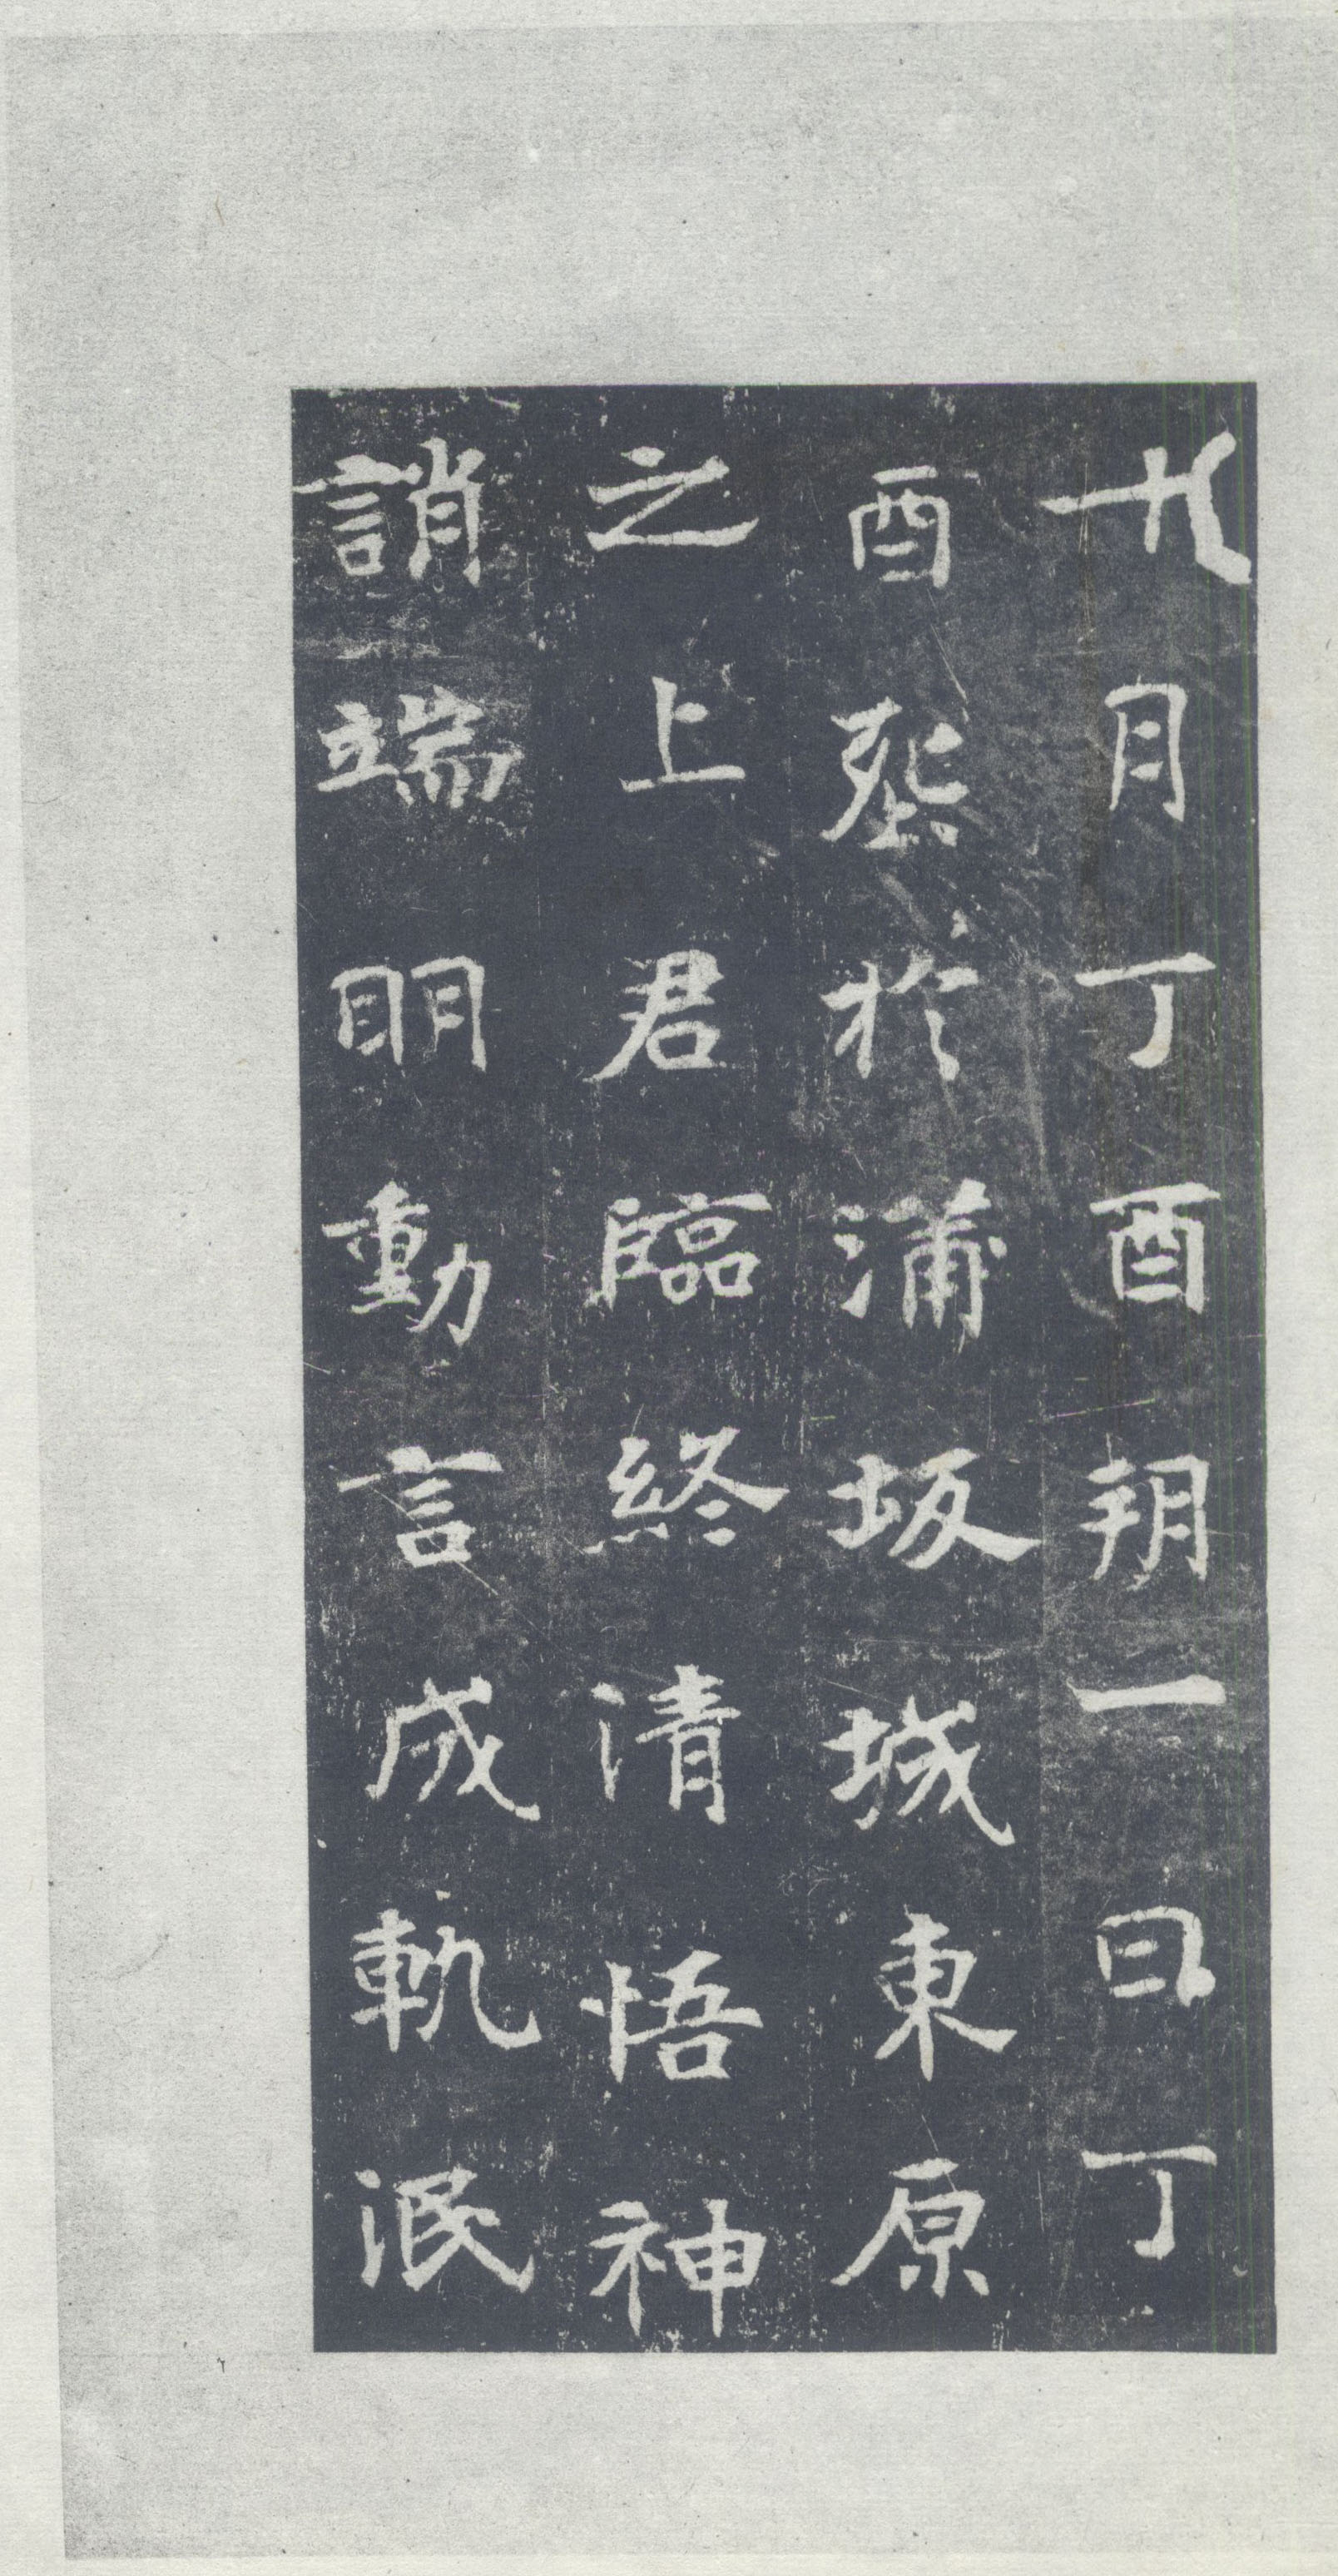 十月丁酉朔一日丁
酉葬於蒲坂城東原
之上君臨終清悟神
誚端明動言成軌泯